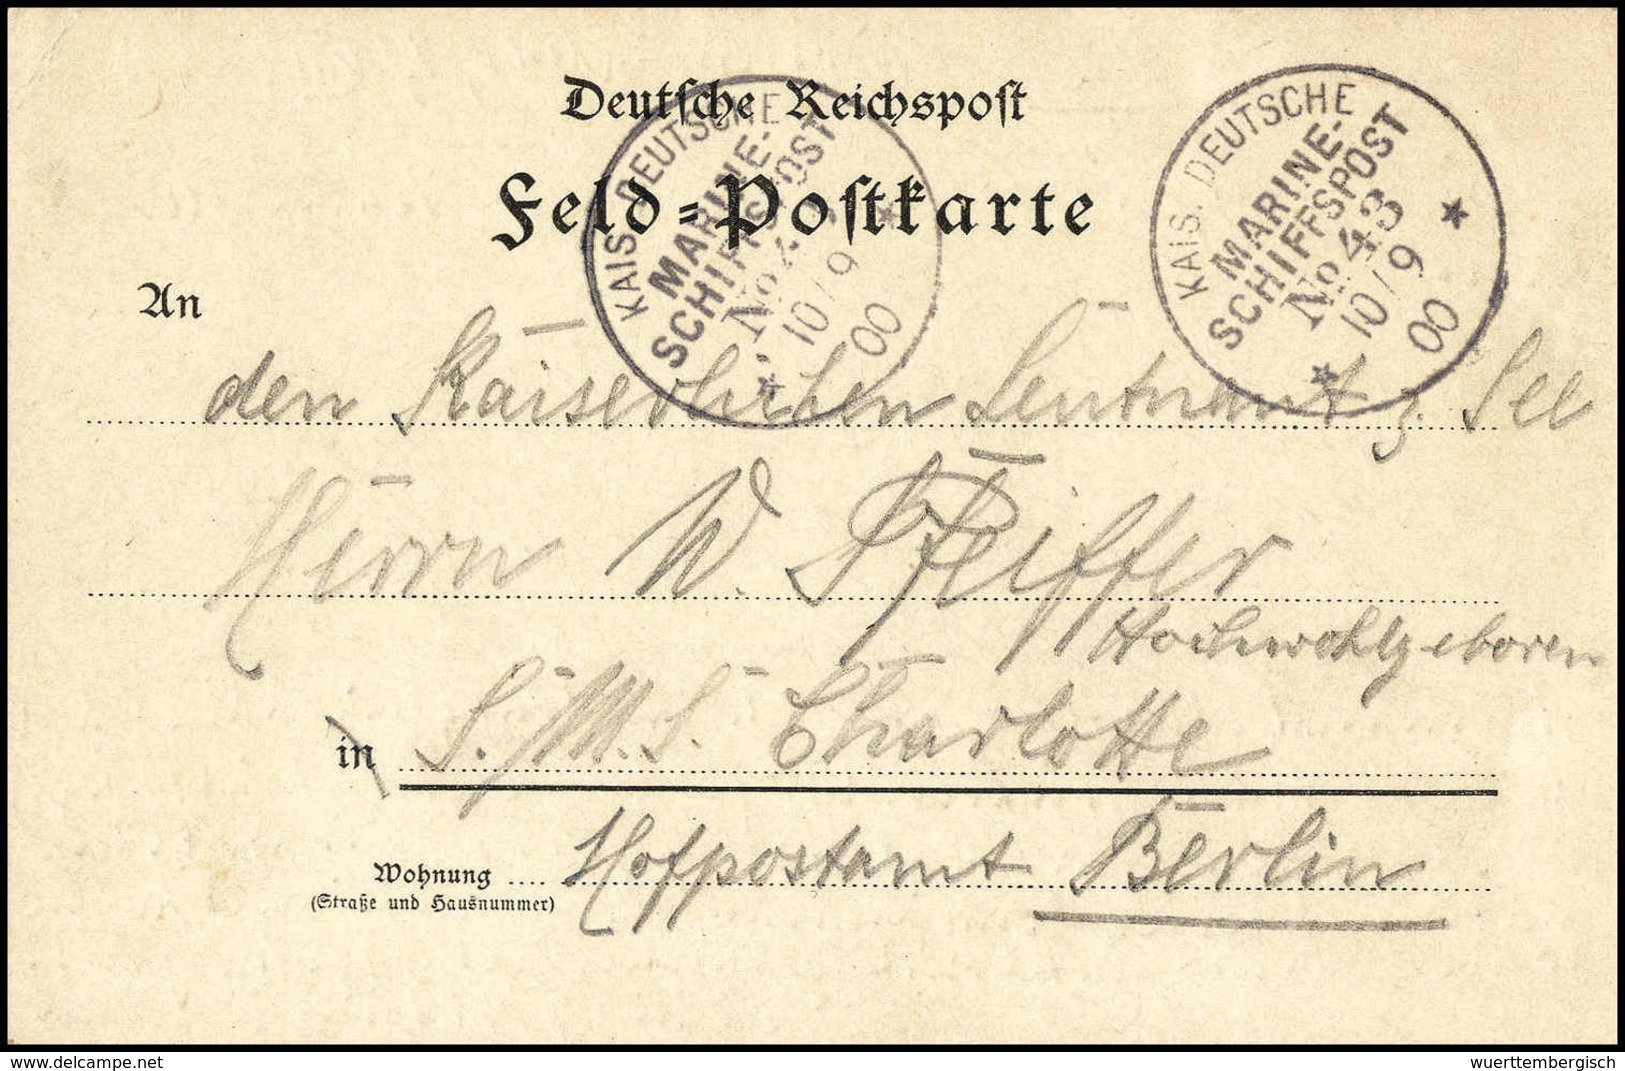 Deutsche Reichspost
Feld-Postkarte
KAIS. DEUTSCHE
MARINE-
SCHIFFSPOST
No 4
10/9
00
KAIS. DEUTSCHE
MARINE-
SCHIFFSPOST
No 43
10/9
00
An
den Kaiserlichen Leutnant z. See
Herrn W. Pfeiffer
Hochwohlgeboren
in S. M. S. Charlotte
Wohnung Hofpostamt Berlin
(Straße und Hausnummer)
www.delcampe.net
wuerttembergisch